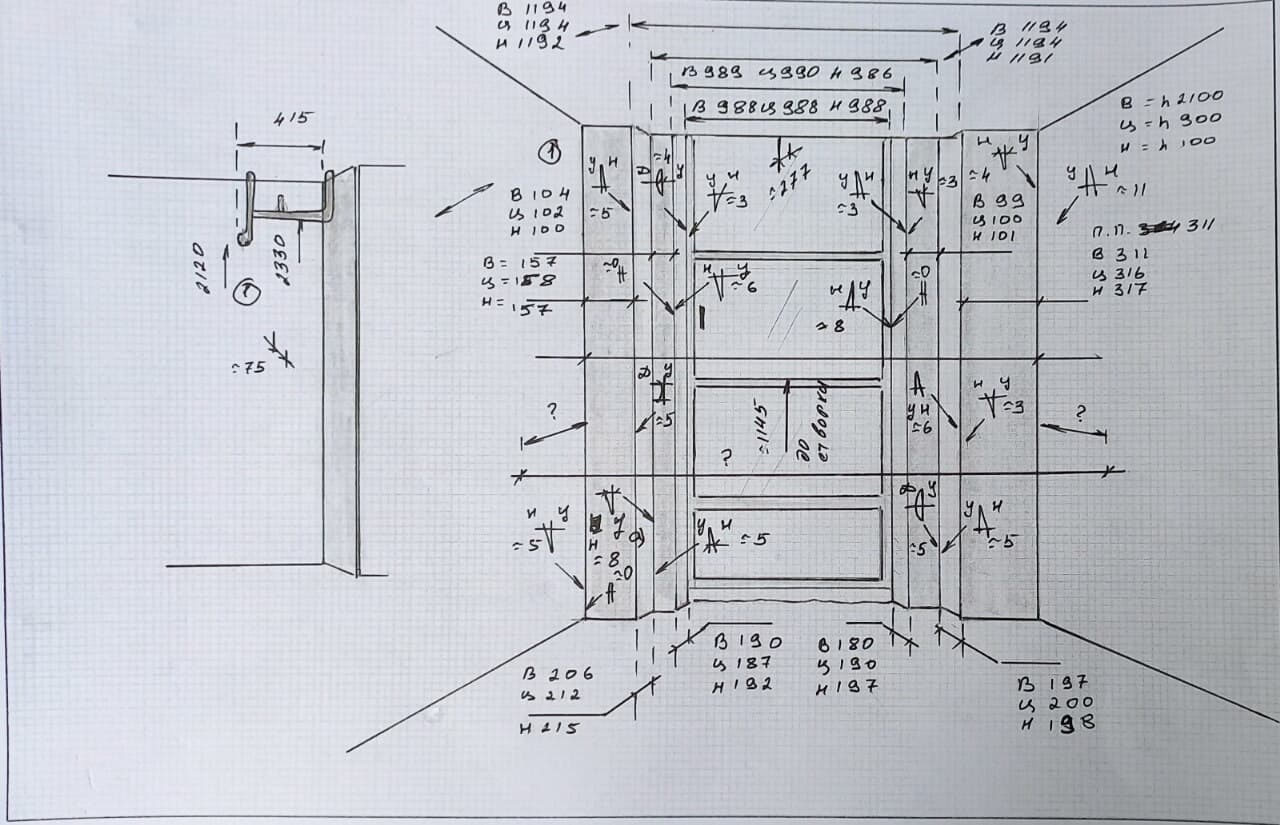 В 1194
Ц 1194
Н 1192
В 1194
Ц 1194
Н 1191
В 989 Ц 990 Н 986
В 988 Ц 988 Н 988
В = h 2100
Ц = h 900
Н = h 100
415
1
В 104
Ц 102
Н 100
У Н
≈5
Д У
≈4
У Н
≈3
≈277
У Н
≈3
Н У
≈3
Н У
≈4
В 99
Ц 100
Н 101
У Н
≈11
П.П. 311
В 311
Ц 316
Н 317
2120
2330
1
≈75
В = 157
Ц = 158
Н = 157
≈0
Н У
≈6
Н У
≈8
≈0
?
Д У
≈5
≈1145
до створки
?
У Н
≈6
Н У
≈3
?
Н У
≈5
У
Н
≈8
≈0
У Н
≈5
Д У
≈5
У Н
≈5
В 206
Ц 212
Н 215
В 190
Ц 187
Н 192
В 180
Ц 190
Н 197
В 197
Ц 200
Н 198